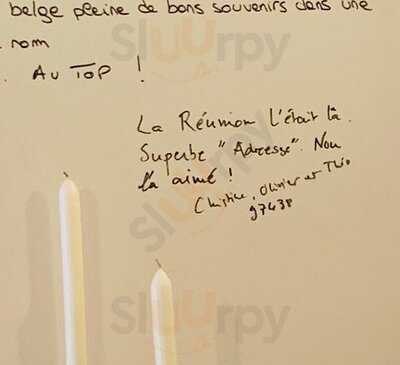 belge pleine de bons souvenirs dans une
nom
Au TOP !
La Réunion l'était là.
Superbe "Adresse". Nou
l'a aimé !
Christine, Olivier et Théo
97438
Sluurpy
Sluurpy
Sluurpy